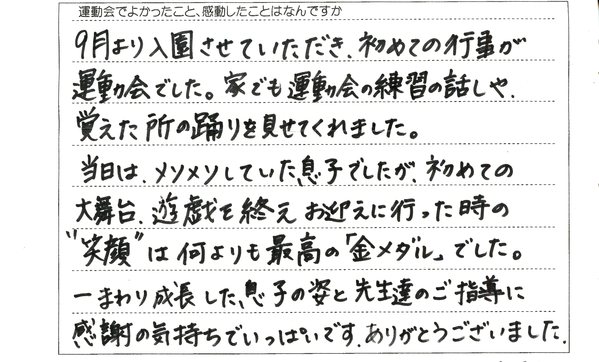 運動会でよかったこと、感動したことはなんですか
9月より入園させていただき、初めての行事が
運動会でした。家でも運動会の練習の話しや、
覚えた所の踊りを見せてくれました。
当日は、メソメソしていた息子でしたが、初めての
大舞台、遊戯を終えお迎えに行った時の
"笑顔"は何よりも最高の「金メダル」でした。
一まわり成長した、息子の姿と先生達のご指導に
感謝の気持ちでいっぱいです。ありがとうございました。